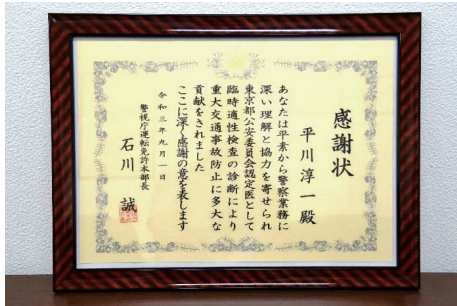 感謝状
平川淳一殿
あなたは平素から警察業務に
深い理解と協力を寄せられ
東京都公安委員会認定医として
臨時適性検査の診断により
重大交通事故防止に多大な
貢献をされました
ここに深く感謝の意を表します
令和三年九月一日
警視庁運転免許本部長
石川誠